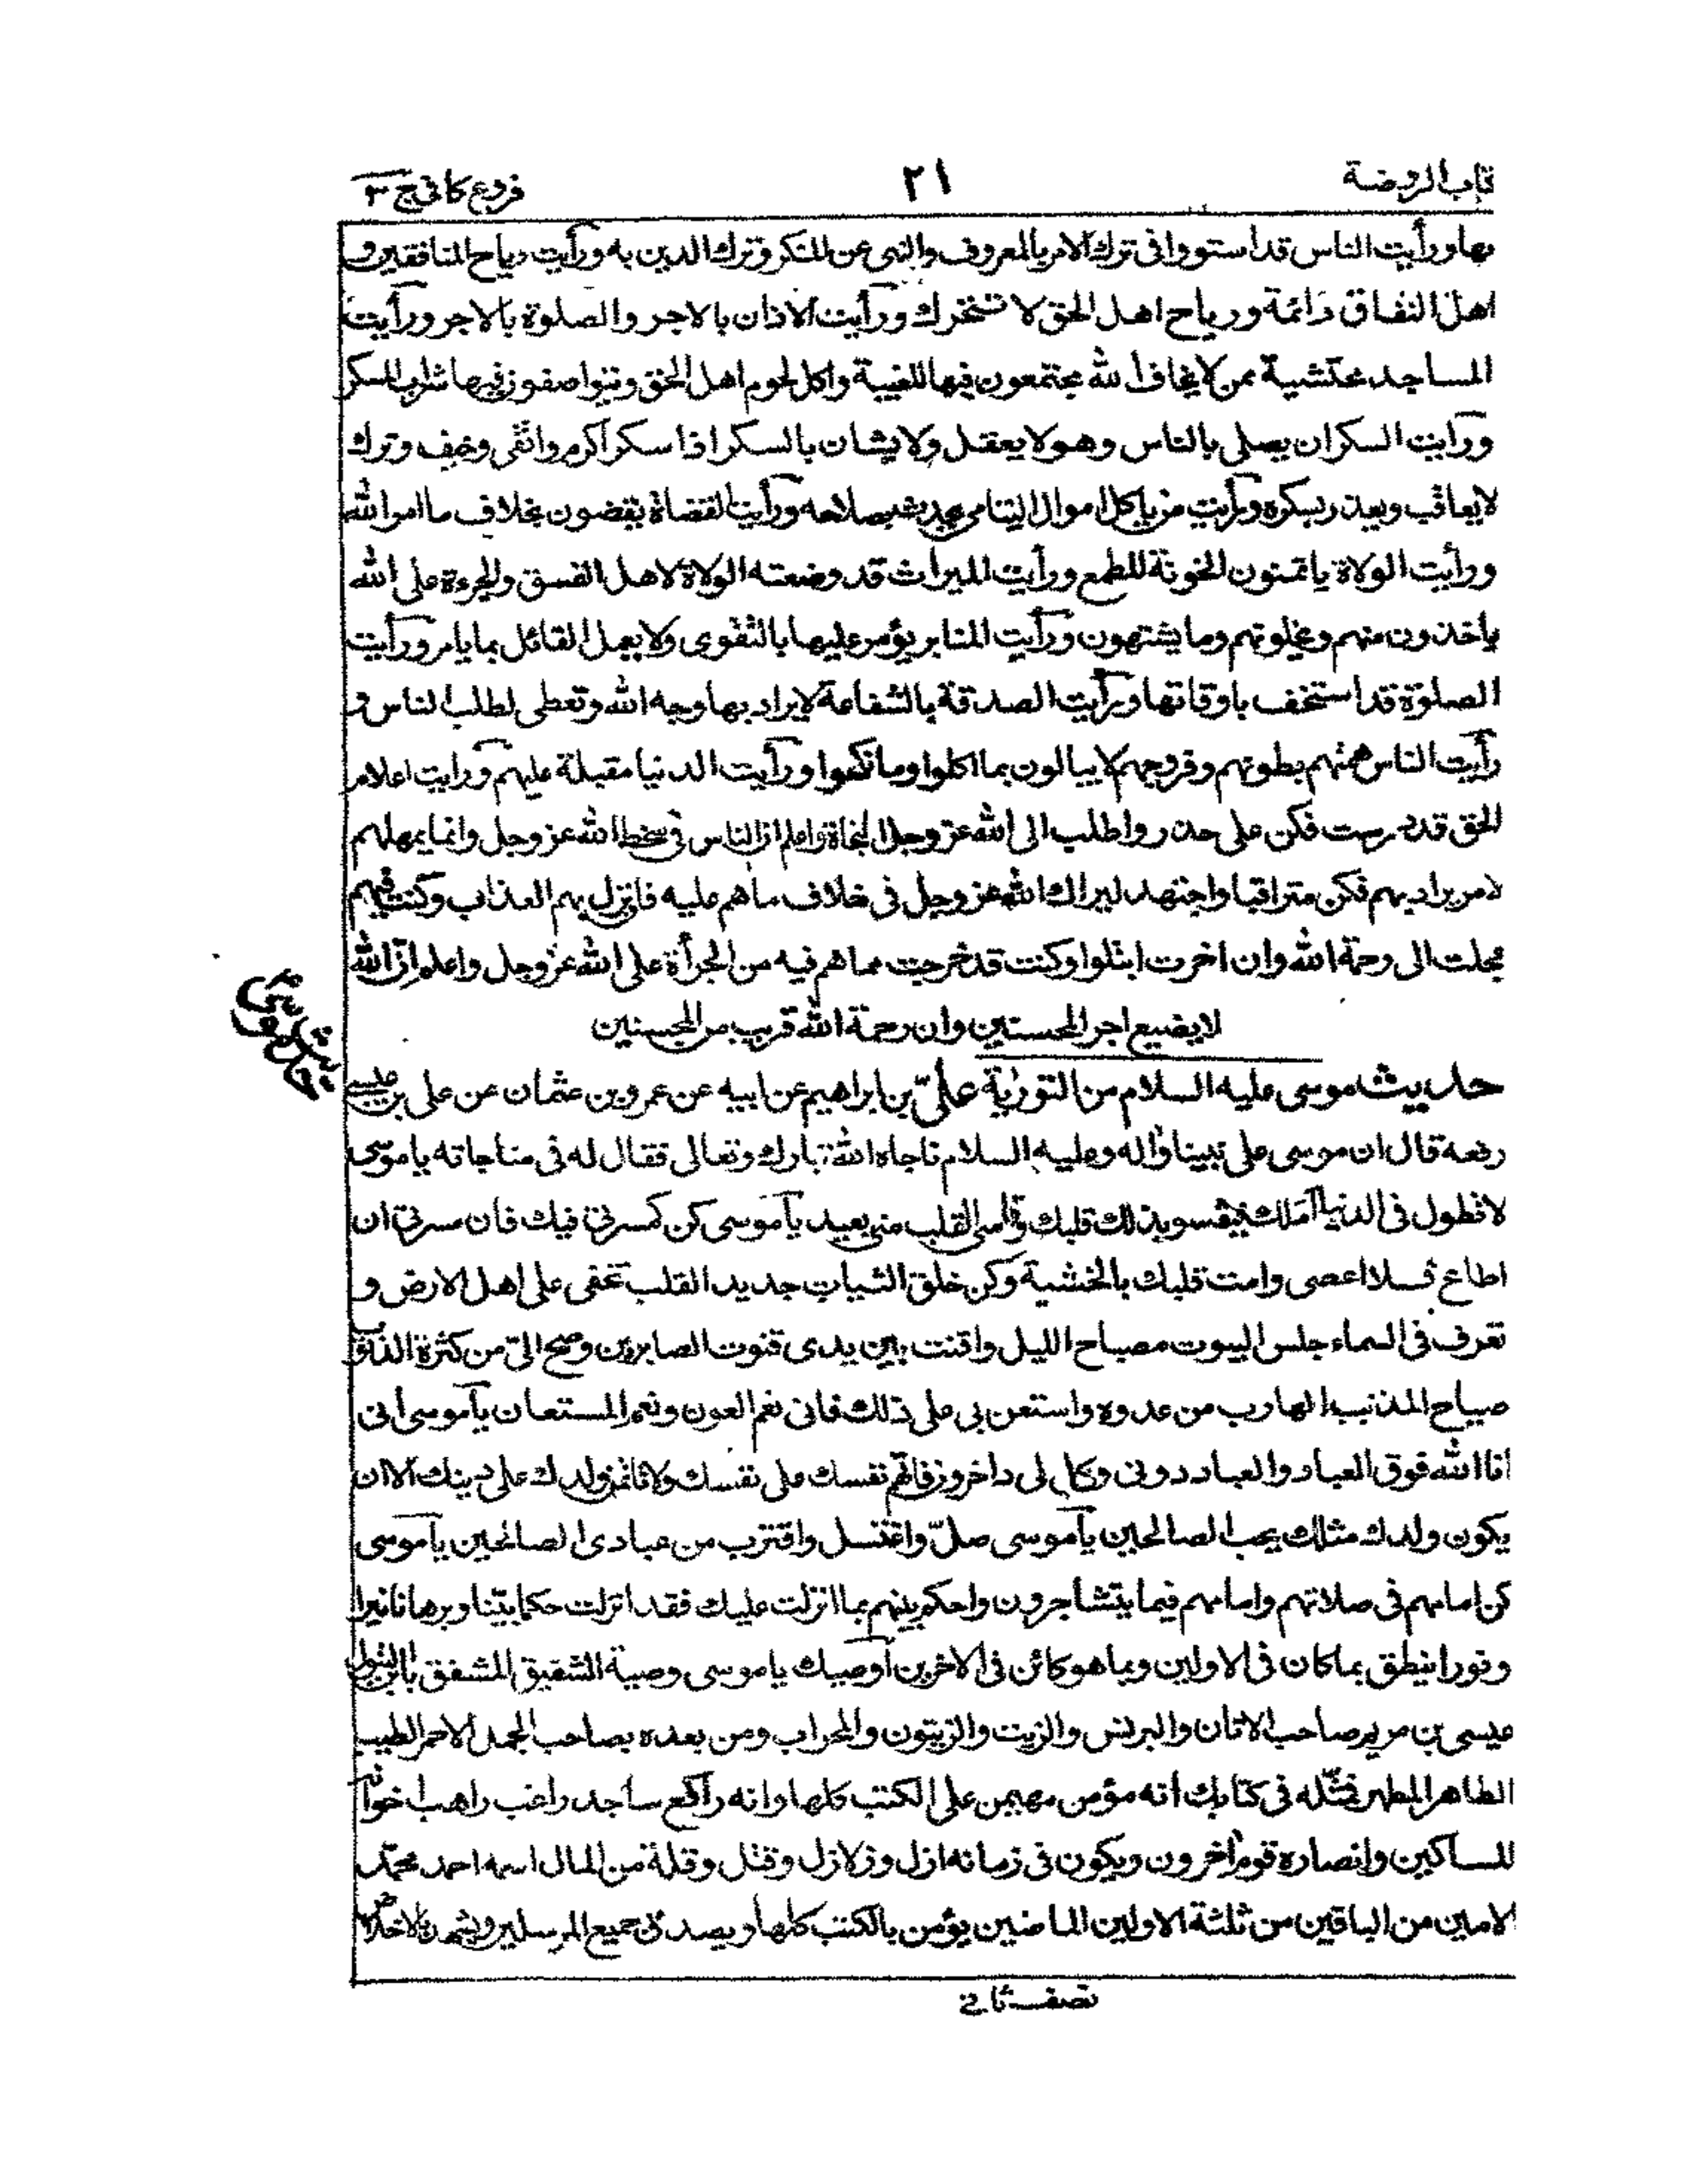 كتاب الروضة
٢١
فروع كافي ج ٣
بها ورأيت الناس قد استووا في ترك الامر بالمعروف والنهي عن المنكر وترك الدين به ورأيت رياح المنافقين و
اهل النفاق دائمة ورياح اهل الحق لا تتحرك ورأيت الاذان بالاجر والصلوة بالاجر ورأيت
المساجد محتشية ممن لا يخاف الله مجتمعون فيها للغيبة واكل لحوم اهل الحق ويتواصفون فيها شراب المسكر
ورايت السكران يصلي بالناس وهو لا يعقل ولا يشان بالسكر اذا سكر اكرم واتقى وخيف وترك
لا يعاقب ويعذر بسكره ورأيت من ياكل اموال اليتامى يحدث بصلاحه ورأيت القضاة يقضون بخلاف ما امر الله
ورأيت الولاة ياتمنون الخونة للطمع ورأيت الميراث قد وضعته الولاة لاهل الفسق والجرءة على الله
ياخذون منهم ويخلونهم وما يشتهون ورأيت المنابر يؤمر عليها بالتقوى ولا يعمل القائل بما يامر ورأيت
الصلوة قد استخف باوقاتها ورأيت الصدقة بالشفاعة لا يراد بها وجه الله وتعطى لطلب الناس و
رأيت الناس همتهم بطونهم وفروجهم لا يبالون بما اكلوا وما نكحوا ورأيت الدنيا مقبلة عليهم ورايت اعلام
الحق قد درست فكن على حذر واطلب الى الله عز وجل النجاة واعلم ان الناس في سخط الله عز وجل وانما يمهلهم
لامر يراد بهم فكن مترقبا واجتهد ليراك الله عز وجل في خلاف ما هم عليه فان نزل بهم العذاب وكنت فيهم
عجلت الى رحمة الله وان اخرت ابتلوا وكنت قد خرجت مما هم فيه من الجرأة على الله عز وجل واعلم ان الله
لا يضيع اجر المحسنين وان رحمة الله قريب من المحسنين
حديث موسى عليه السلام من التورية علي بن ابراهيم عن ابيه عن عمرو بن عثمان عن علي بن عيسى
رفعه قال ان موسى على نبينا واله وعليه السلام ناجاه الله تبارك وتعالى فقال له في مناجاته يا موسى
لا تطول في الدنيا املك فيقسو بذلك قلبك وقاسي القلب مني بعيد يا موسى كن كمسرتي فيك فان مسرتي ان
اطاع فلا اعصى وامت قلبك بالخشية وكن خلق الثياب جديد القلب تخفى على اهل الارض و
تعرف في السماء جلس البيوت مصباح الليل واقنت بين يدي قنوت الصابرين وصح الي من كثرة الذنوب
صياح المذنب الهارب من عدوه واستعن بي على ذلك فاني نعم العون ونعم المستعان يا موسى اني
انا الله فوق العباد والعباد دوني وكل لي داخرون فاتهم نفسك على نفسك ولا تاتمن ولدك على دينك الا ان
يكون ولدك مثلك يحب الصالحين يا موسى صل واغتسل واقترب من عبادي الصالحين يا موسى
كن امامهم في صلاتهم وامامهم فيما يتشاجرون واحكم بينهم بما انزلت عليك فقد انزلت حكما بينا وبرهانا نيرا
ونورا ينطق بما كان في الاولين وبما هو كائن في الاخرين اوصيك يا موسى وصية الشفيق المشفق بابن البتول
عيسى بن مريم صاحب الاتان والبرنس والزيت والزيتون والمحراب ومن بعده بصاحب الجمل الاحمر الطيب
الطاهر المطهر فمثله في كتابك انه مؤمن مهيمن على الكتب كلها وانه راكع ساجد راغب راهب اخوانه
المساكين وانصاره قوم اخرون ويكون في زمانه ازل وزلازل وقتل وقلة من المال اسمه احمد محمد
الامين من الباقين من ثلثة الاولين الماضين يؤمن بالكتب كلها ويصدق جميع المرسلين ويشهد بالاخلاص
نصف ثاني